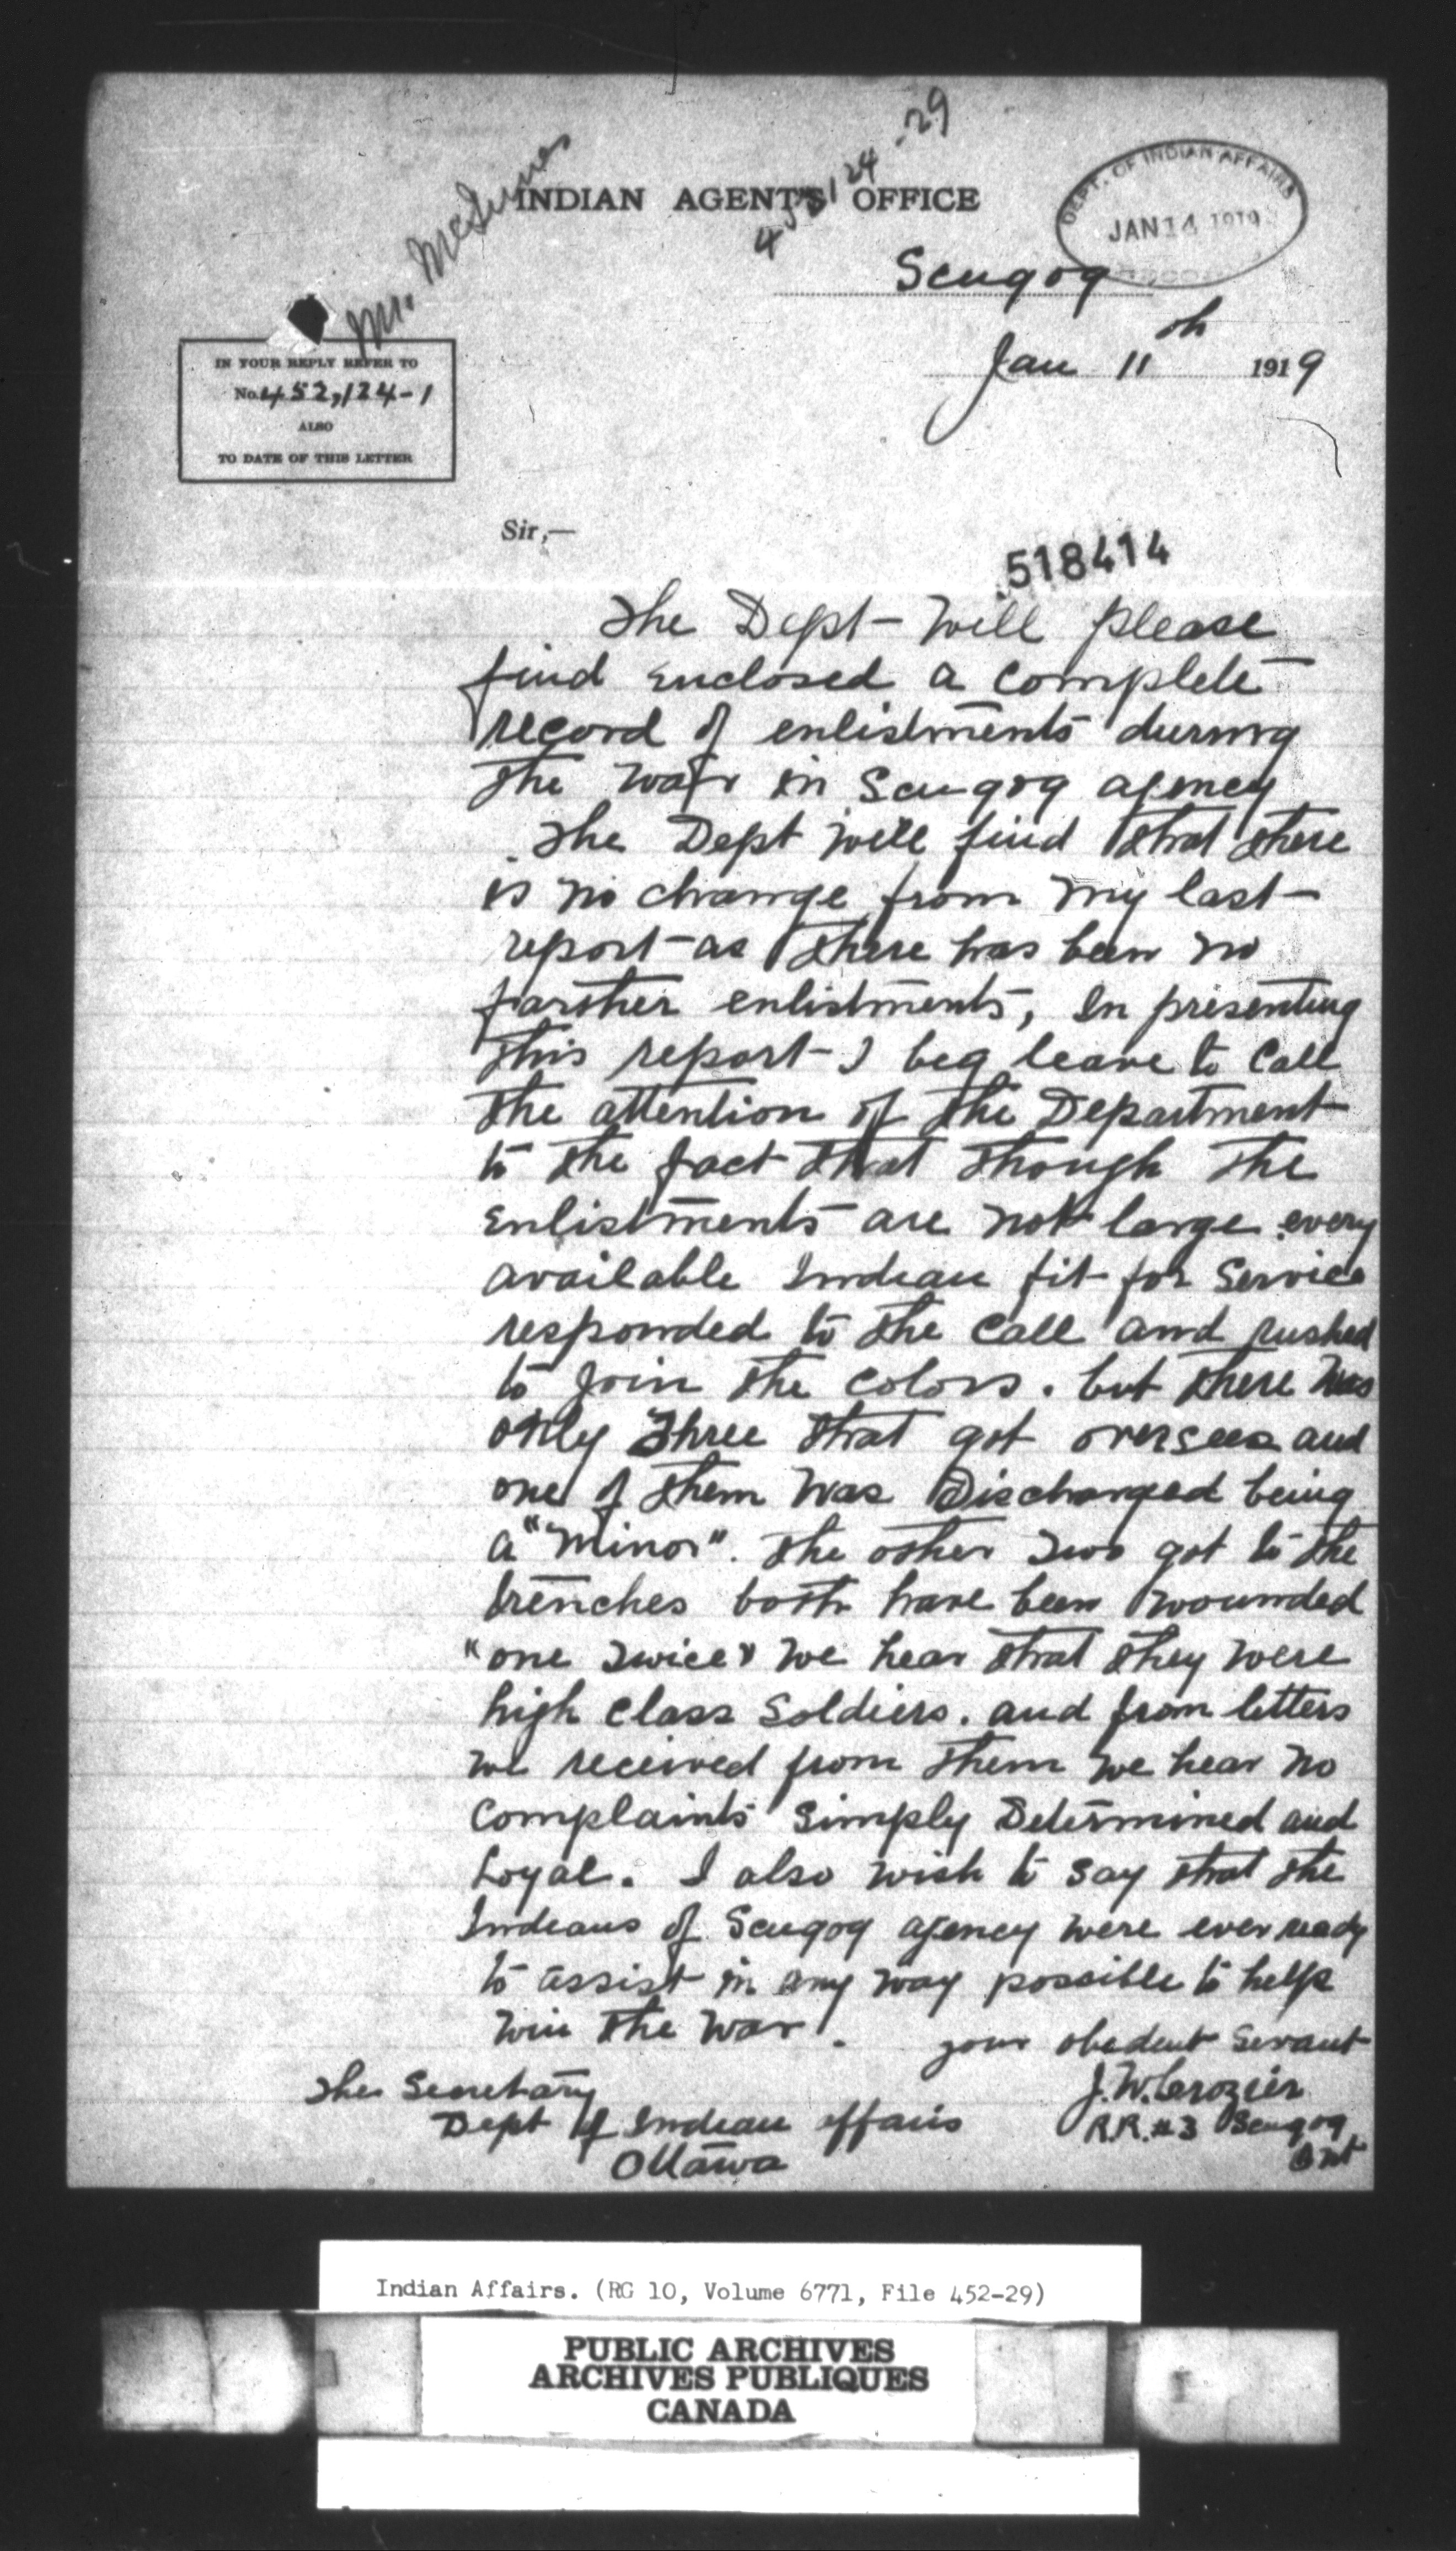 452124-29
Mr. McInnes
INDIAN AGENT'S OFFICE
DEPT. OF INDIAN AFFAIRS
JAN 14 1919
Scugog
Jan 11th 1919
IN YOUR REPLY REFER TO
No. 452,124-1
ALSO
TO DATE OF THIS LETTER
Sir,—
518414
The Dept- will please
find enclosed a complete
record of enlistments during
the war in Scugog agency
The Dept will find that there
is no change from my last-
report- as there has been no
farther enlistments, In presenting
this report- I beg leave to call
the attention of the Department
to the fact that though the
enlistments are not large every
available Indian fit for service
responded to the call and rushed
to join the colors. but there was
only three that got overseas and
one of them was Discharged being
a "minor". The other two got to the
trenches both have been wounded
"one twice" we hear that they were
high class soldiers. and from letters
we received from them we hear no
complaints simply Determined and
Loyal. I also wish to say that the
Indians of Scugog agency were ever ready
to assist in any way possible to help
win the war.
your obedent servant
The Secretary
J.W. Crozier
Dept of Indian affairs
R.R. #3 Scugog
Ottawa
Ont
Indian Affairs. (RG 10, Volume 6771, File 452-29)
PUBLIC ARCHIVES
ARCHIVES PUBLIQUES
CANADA